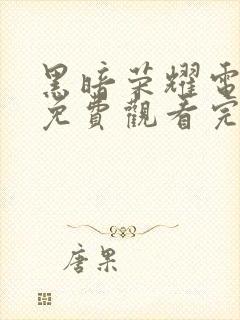 黑暗荣耀電
免費觀看完
唐果